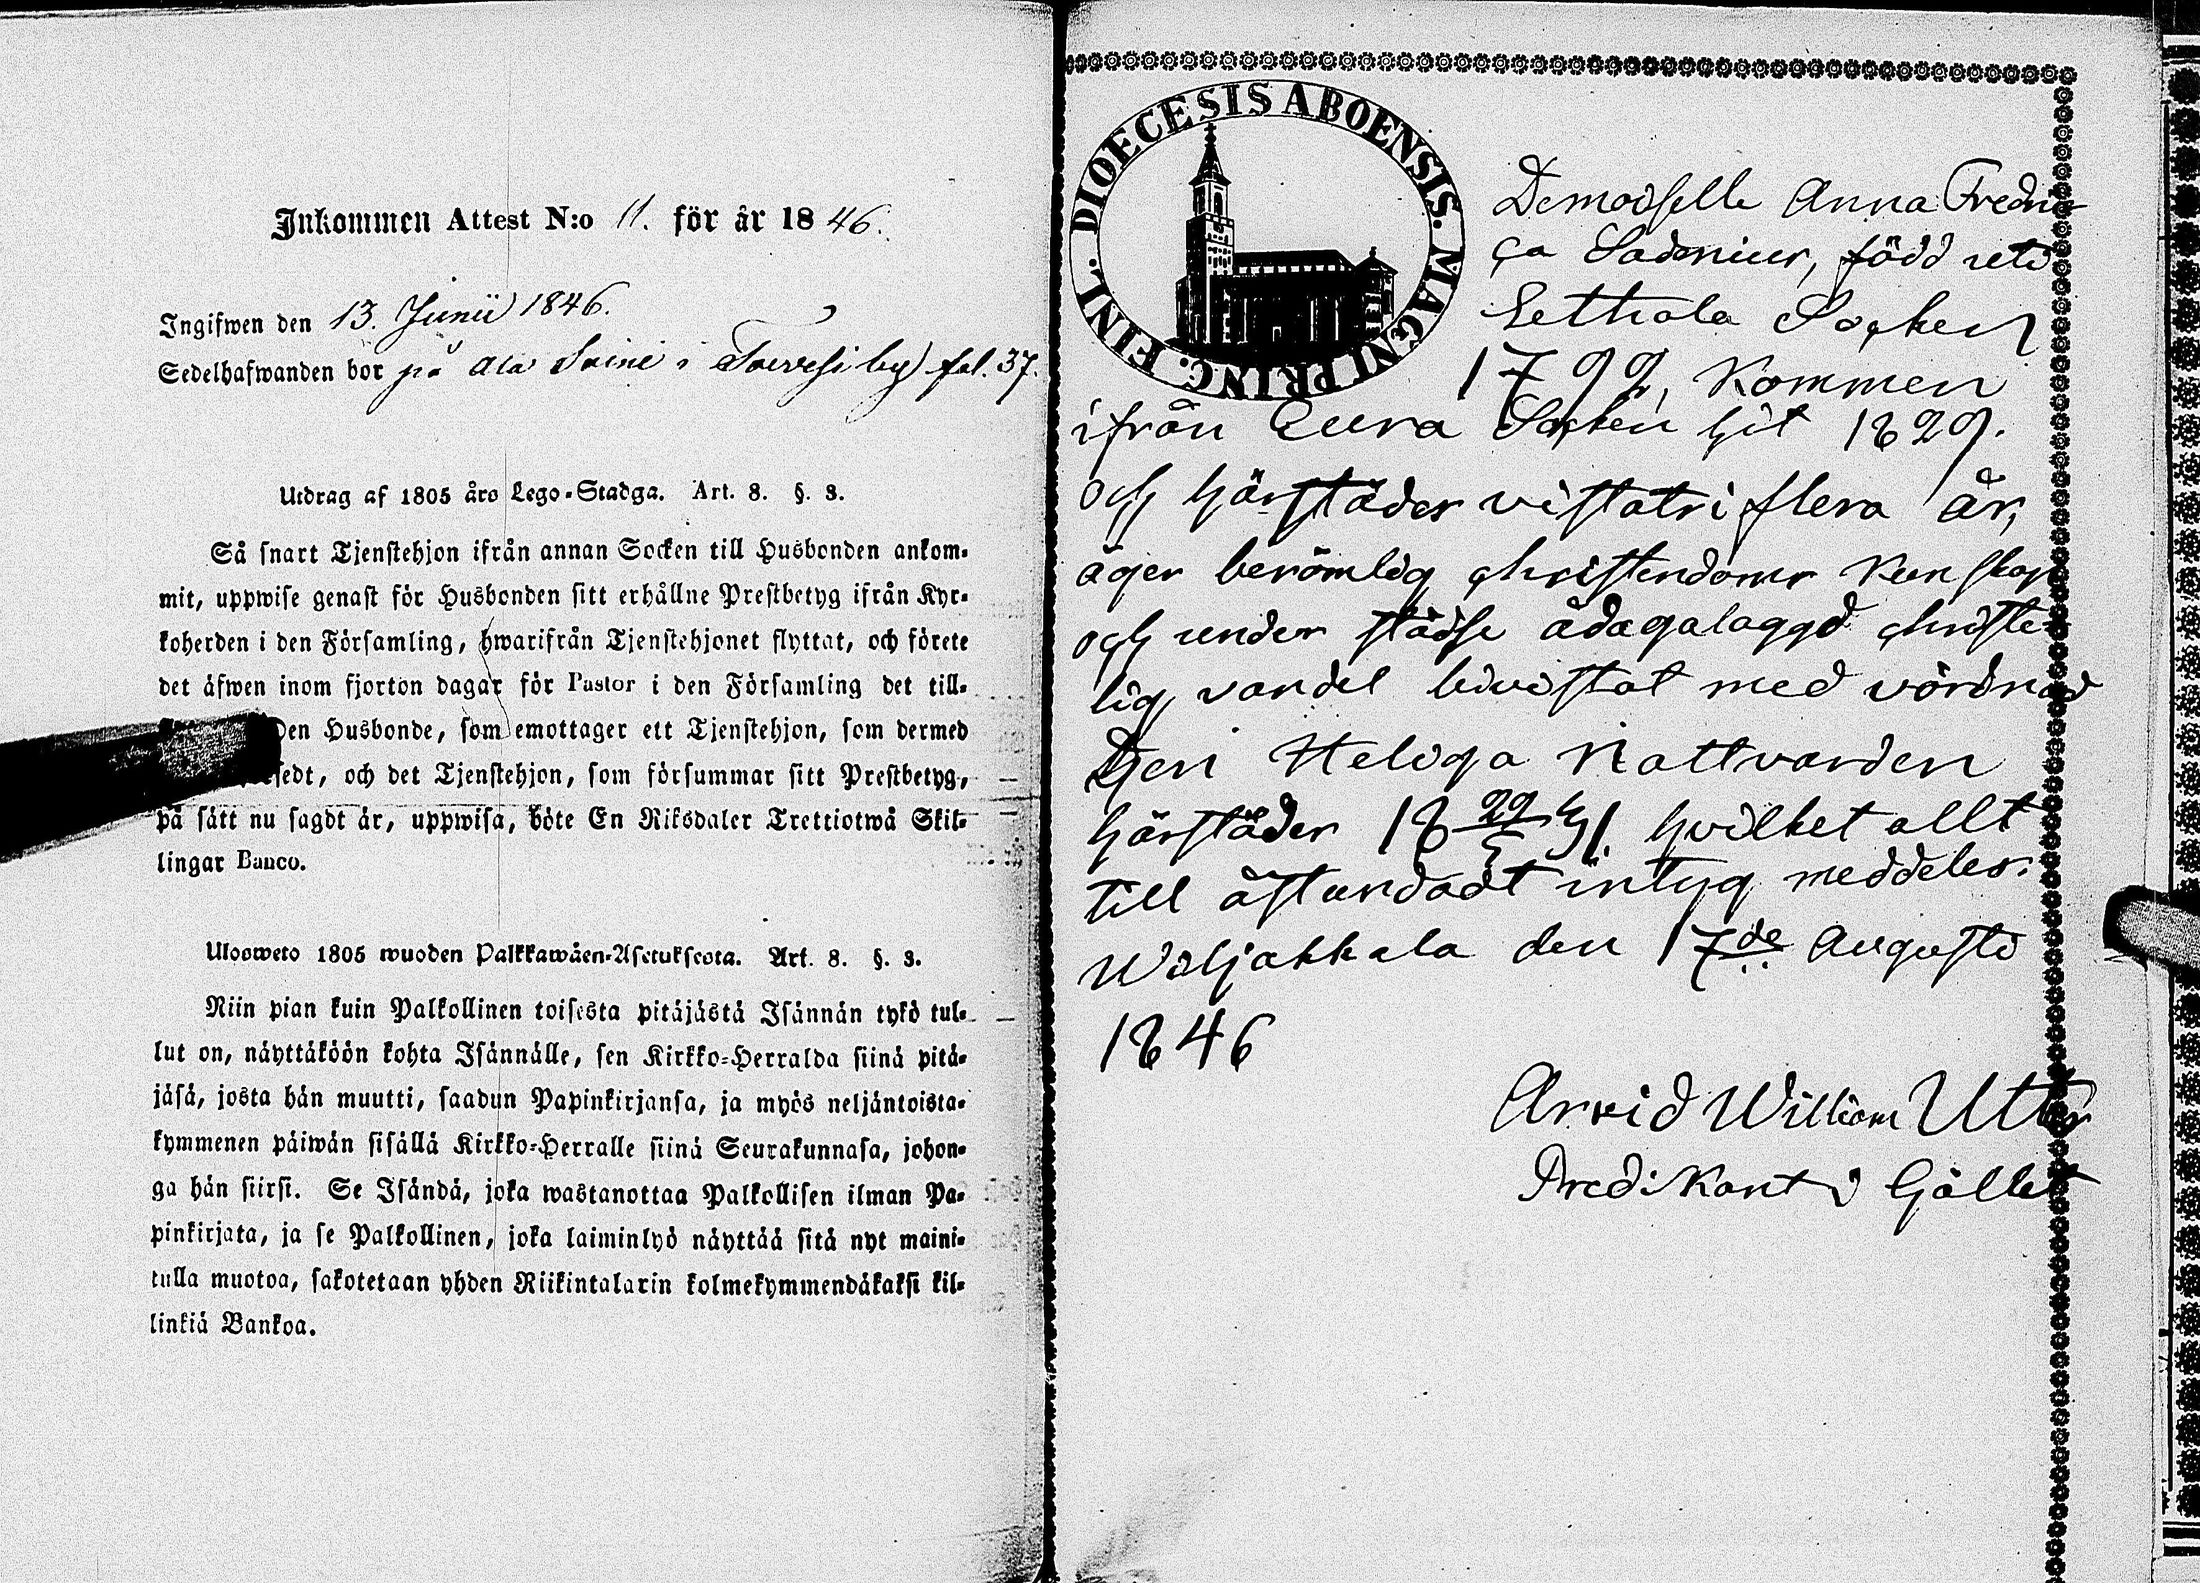 Inkommen Attest N:o 11. för år 1846.
Ingifwen den 13. Junii 1846.
Sedelhafwanden bor på Ala i by) fol. 37.
Utdrag af 1805 års Lego-Stadga. Art. 8. §. 3.
Så snart Tjenstehjon ifrån annan Socken till Husbonden ankom-
mit, uppwise genast för Husbonden sitt erhållne Prestbetyg ifrån Kyr-
koherden i den Församling, hwarifrån Tjenstehjonet flyttat, och förete
det äfwen inom fjorton dagar för Pastor i den Församling det till-
den Husbonde, som emottager ett Tjenstehjon, som dermed
sedt, och det Tjenstehjon, som försummar sitt Prestbetyg,
på sätt nu sagdt är, uppwisa, böte En Riksdaler Trettiotwå Skil-
lingar Banco.
Ulosweto 1805 wuoden Palkkawäen-Asetuksesta. Art. 8. §. 3.
Niin pian kuin Palkollinen toisesta pitäjästä Isännän tykö tul-
lut on, näyttäköön kohta Isännälle, sen Kirkko-Herralda siinä pitä-
jäsä, josta hän muutti, saadun Papinkirjansa, ja myös neljäntoista-
kymmenen päiwän sisällä Kirkko-Herralle siinä Seurakunnasa, johon-
ga hän siirsi. Se Isändä, joka wastanottaa Palkollisen ilman Pa-
pinkirjata, ja se Palkollinen, joka laiminlyö näyttää sitä nyt maini-
tulla muotoa, sakotetaan yhden Riikintalarin kolmekymmendäkaksi kil-
linkiä Bankoa.
DIOECESIS ABOENSIS. MAGNI PRINC. FINL.
Demoiselle Anna Fredri
ca Sadenius, född uti
Letthala Socken
1799, Kommen
ifrån Eura Socken hit 1829.
och härstädes vistats i flera år,
äger berömlig christendoms Kunskap
och under städse ådagalaggd christe-
lig vandel bivistat med vördnad
Den Heliga Nattvarden
härstädes 18 hvilket allt
till åstundadt intyg meddeles.
Wiljakkala den 17de Augusti
1846
Arvid William Utter
Predikant i Gället